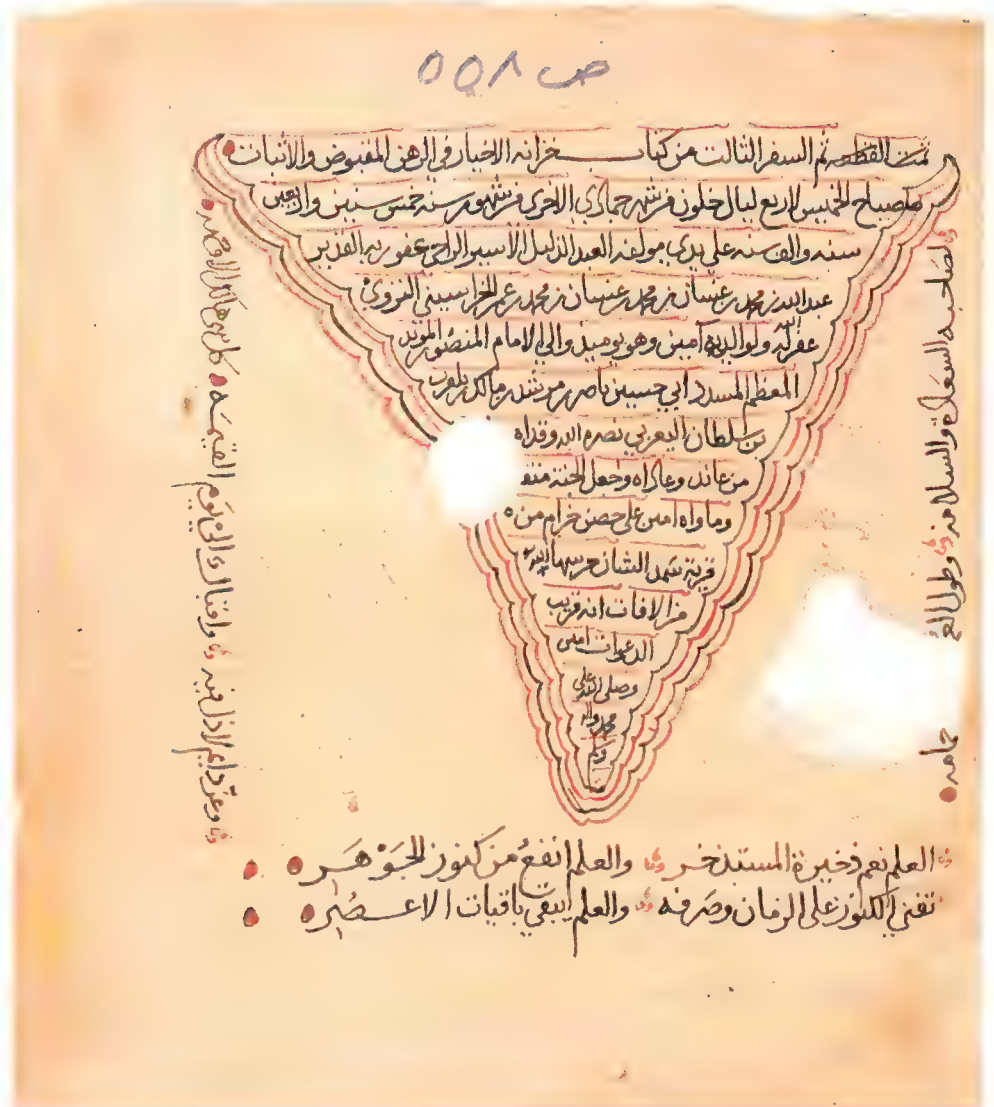 ص ٥٥٨
تمت القطعه تم السفر الثالث من كتاب خزانه الاخيار في الرهن المقبوض والاثبات
صباح الخميس لاربع ليال خلون من شهر جمادى الاخرى من شهور سنه خمس سنين واربعين
سنه والف سنه على يدي مولفه العبد الذليل الاسير الراجي عفو ربه القدير
عبدالله بن محمد بن غسان بن محمد بن غسان بن محمد بن عمر الخراسيني النزوي
غفر الله له ولوالديه آمين وهو يوميذ والي الامام المنصور المويد
المعظم المسدد ابي حسين ناصر بن مرشد بن مالك بن بلعرب
بن سلطان اليعربي نصره الله وقداه
من عانده وعاداه وجعل الجنة
وماواه امين على حصن خرام من
قرية سمد الشان حرسها الله
من الافات انه قريب
الدعوات امين
وصلى الله على
محمد واله
وسلم
لصاحبه السعادة والسلامه وطول
حمامه
وعز دايم لا ذل فيه واقبال الى يوم القيمه
العلم نعم ذخيرة المستذخر والعلم انفع من كنوز الجوهر
تفنى الكنوز على الزمان وصرفه والعلم يبقى باقيات الاعصر